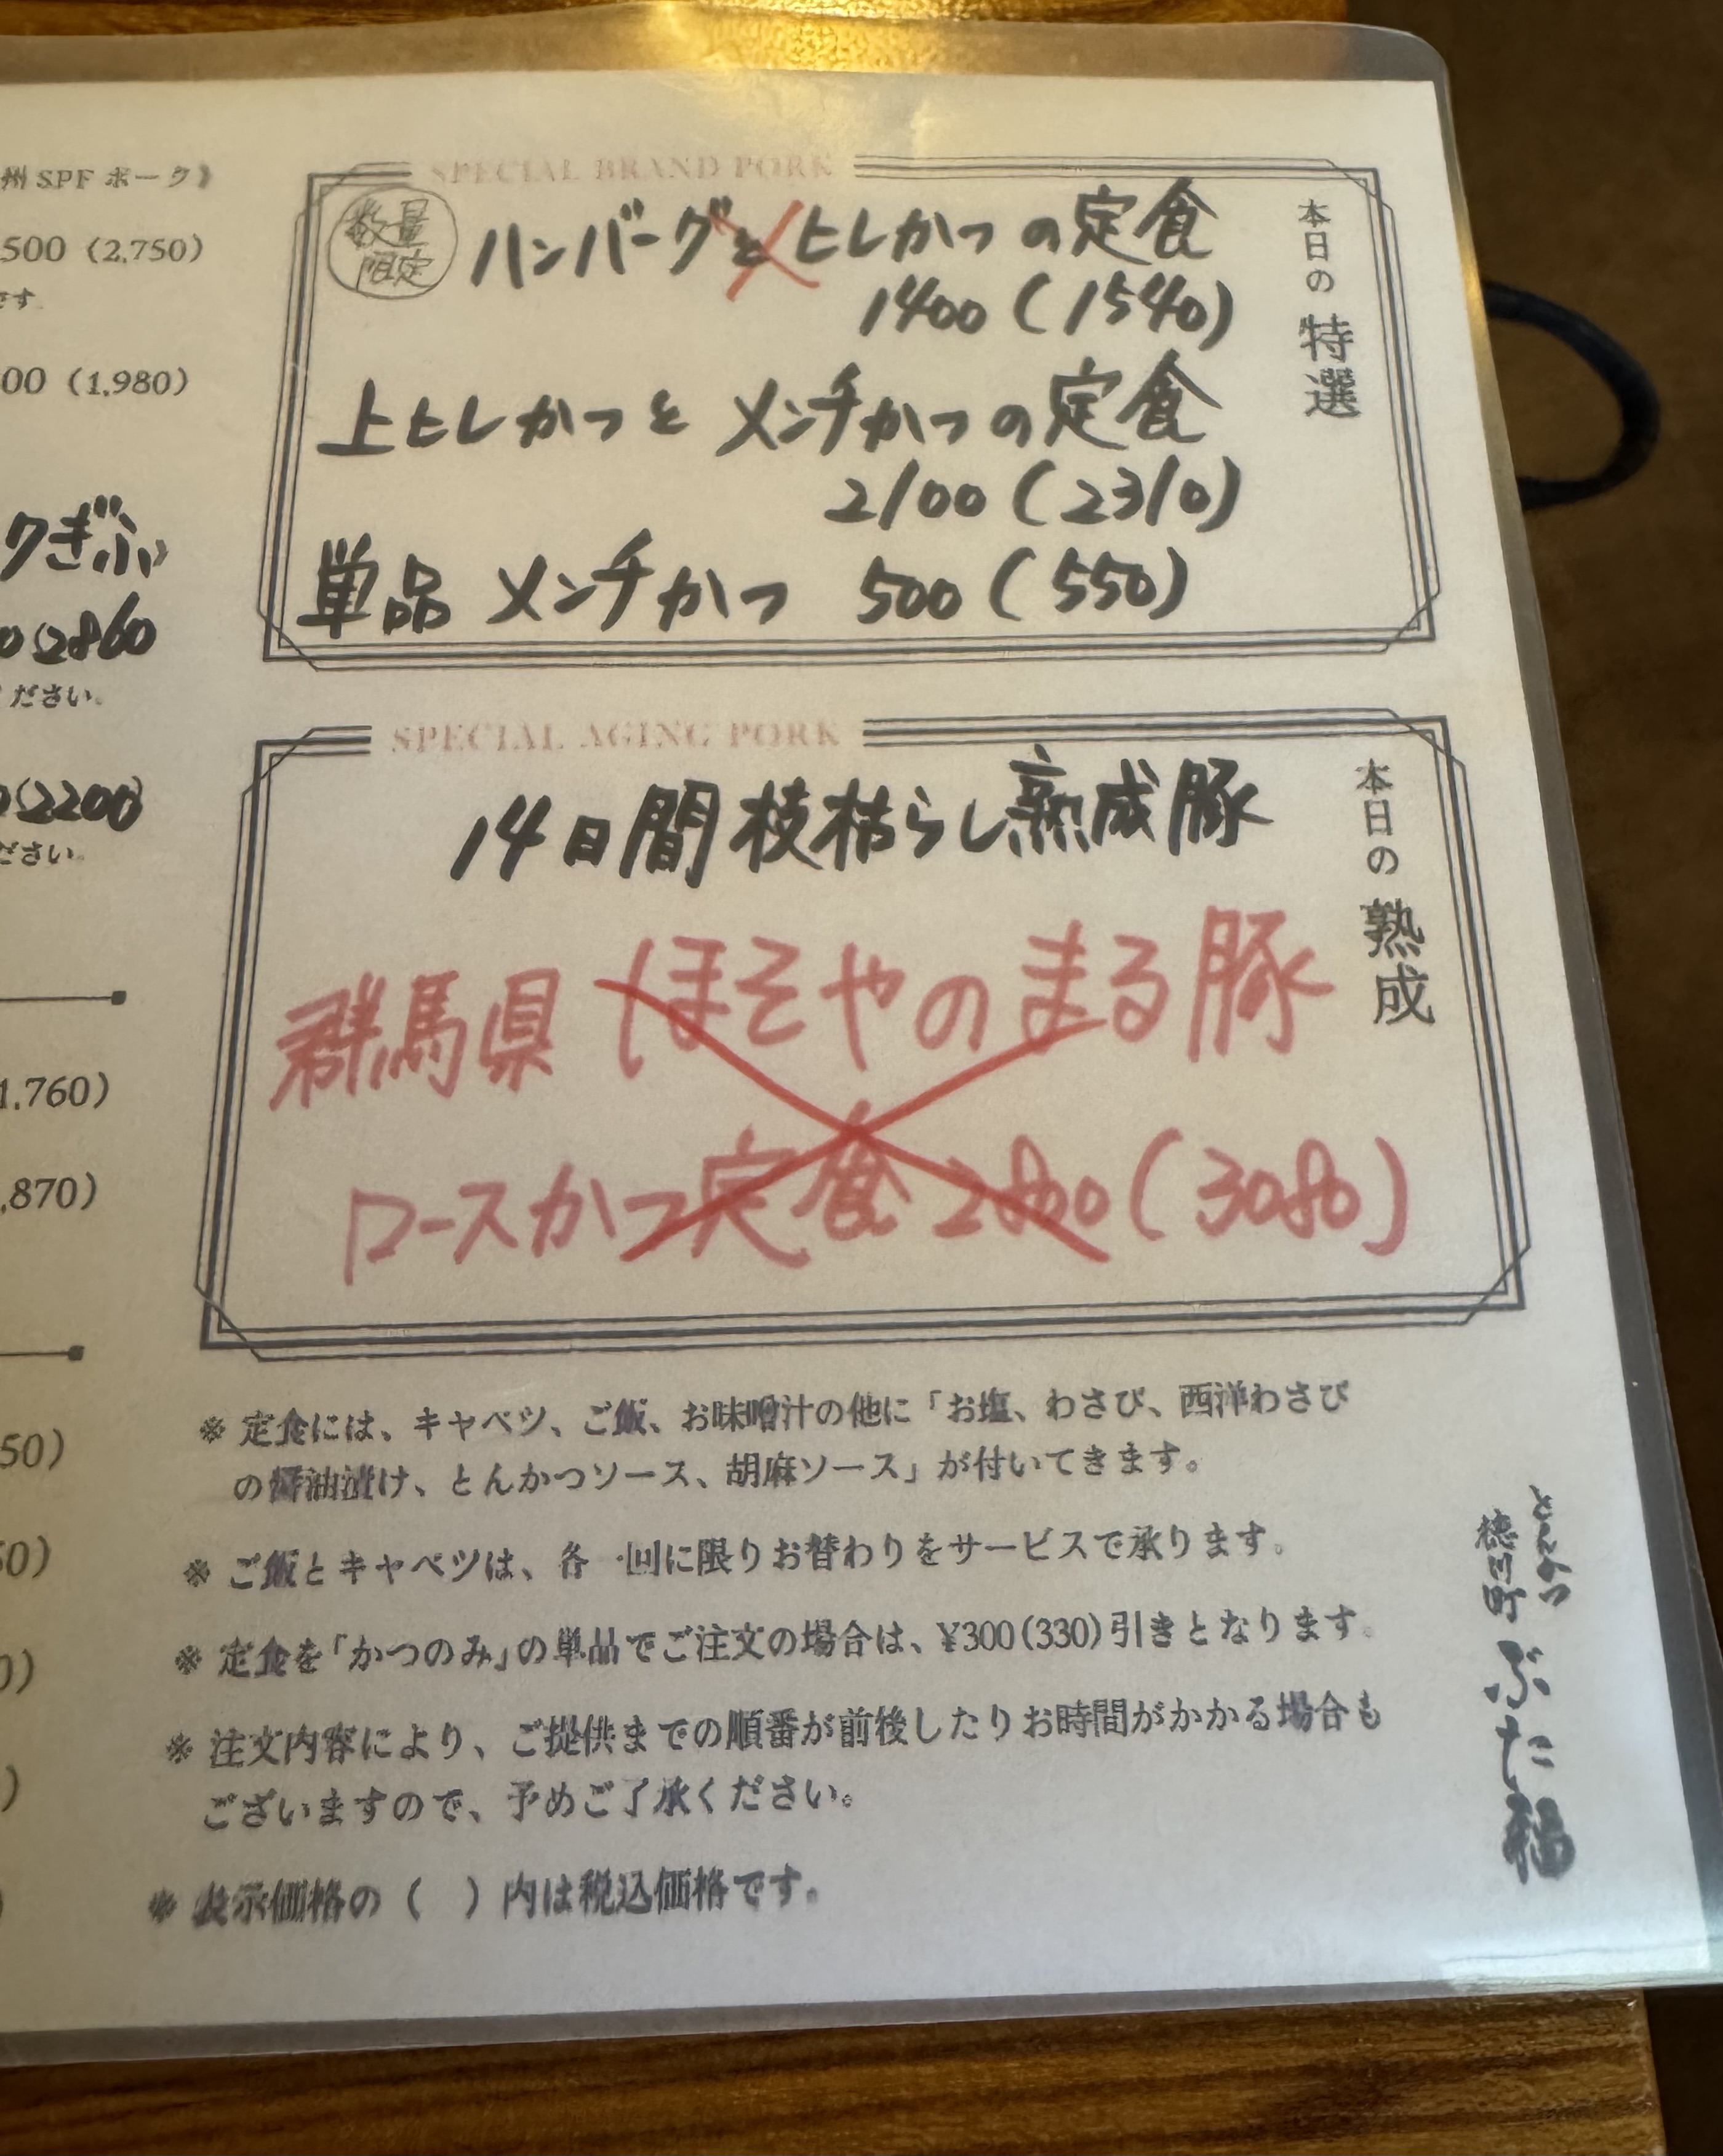 州SPFポーク》
500（2,750）
です。
00（1,980）
クぎふ
2860
ください。
(2200)
ださい。
1,760）
,870）
50）
50）
0）
）
SPECIAL BRAND PORK
本日の特選
数量
限定
ハンバーグとヒレかつの定食
1400(1540)
上ヒレかつとメンチかつの定食
2100(2310)
単品 メンチかつ 500(550)
SPECIAL AGING PORK
本日の熟成
14日間枝枯らし熟成豚
群馬県 ほそやのまる豚
ロースかつ定食 2800(3080)
※ 定食には、キャベツ、ご飯、お味噌汁の他に「お塩、わさび、西洋わさび
の醤油漬け、とんかつソース、胡麻ソース」が付いてきます。
※ ご飯とキャベツは、各一回に限りお替わりをサービスで承ります。
※ 定食を「かつのみ」の単品でご注文の場合は、¥300(330)引きとなります。
※ 注文内容により、ご提供までの順番が前後したりお時間がかかる場合も
ございますので、予めご了承ください。
※ 表示価格の（　）内は税込価格です。
とんかつ
徳川町 ぶた福